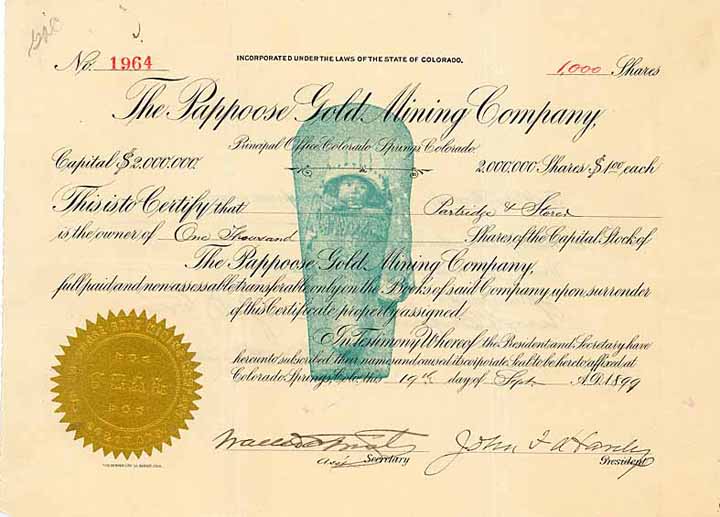 No. 1964
INCORPORATED UNDER THE LAWS OF THE STATE OF COLORADO.
1,000 Shares
The Pappoose Gold Mining Company,
Principal Office, Colorado Springs, Colorado.
Capital $2,000,000. 2,000,000 Shares $1.00 each
This is to Certify that Partridge & Storer
is the owner of One Thousand Shares of the Capital Stock of
The Pappoose Gold Mining Company,
full paid and non-assessable transferable only on the Books of said Company upon surrender
of this Certificate properly assigned.
In Testimony Whereof the President and Secretary have
hereunto subscribed their names and caused its corporate Seal to be hereto affixed at
Colorado Springs, Colo, this 19th day of Sept A.D. 1899
SEAL
Secretary
John
President